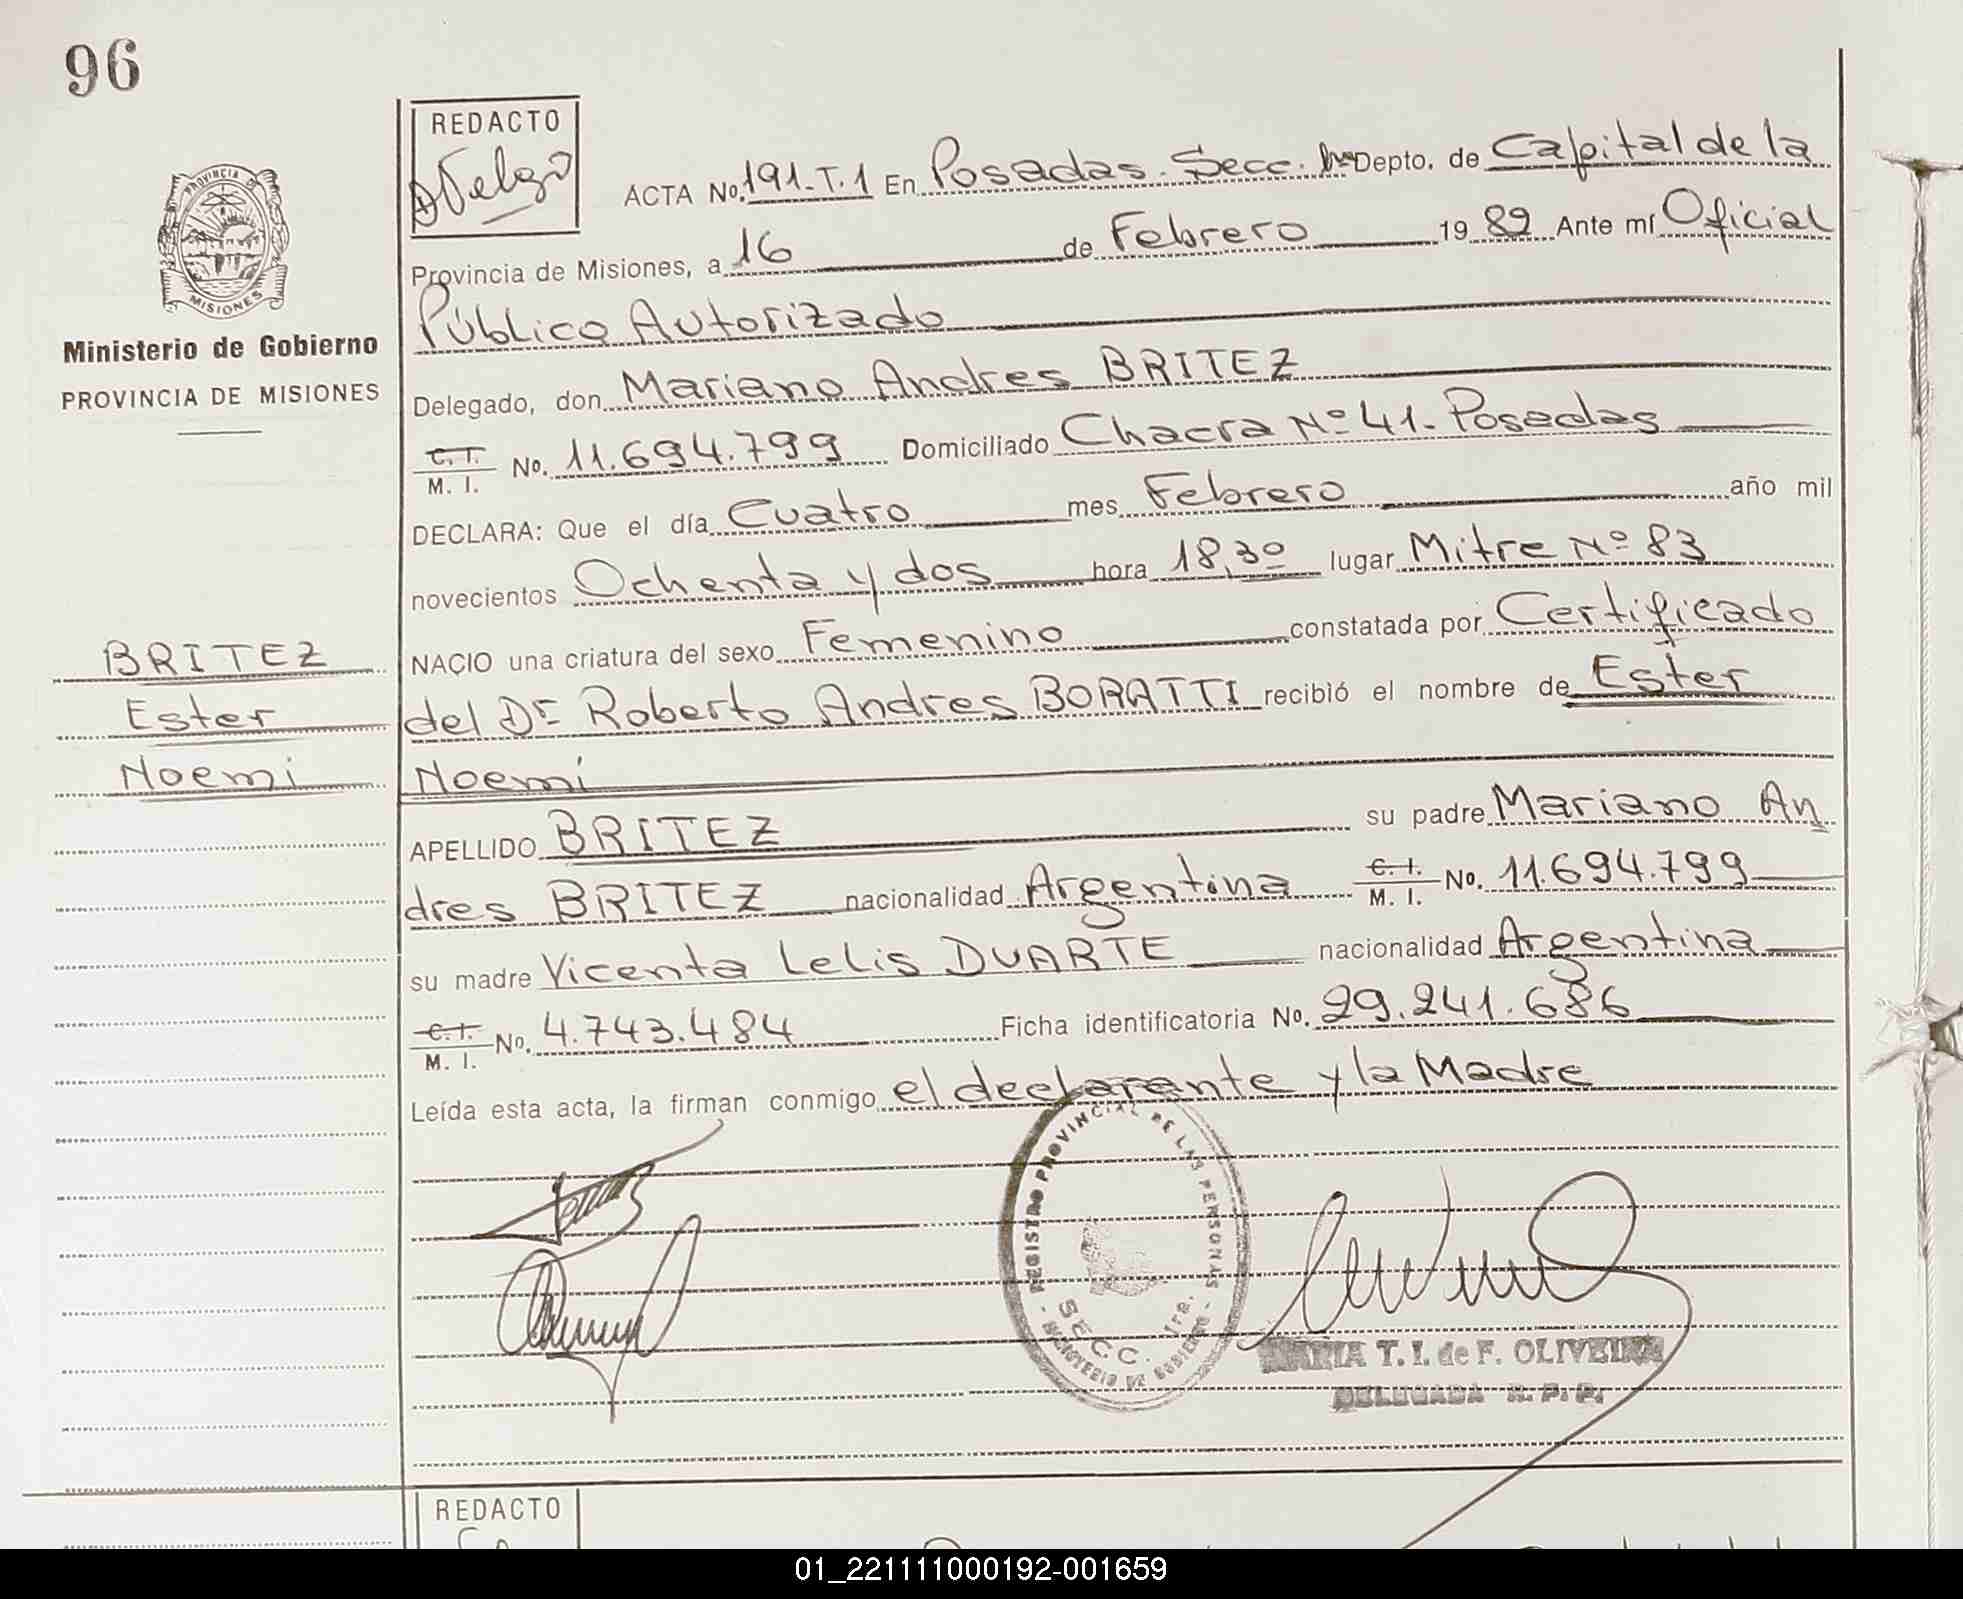 96
REDACTO
ACTA No. 191-T.1 En Posadas. Secc. 1ra Depto. de Capital de la
Provincia de Misiones, a 16 de Febrero 1982 Ante mí Oficial
Público Autorizado
Delegado, don Mariano Andres BRITEZ
C.I. M. I. No. 11.694.799 Domiciliado Chacra Nº 41- Posadas
DECLARA: Que el día Cuatro mes Febrero año mil
novecientos Ochenta y dos hora 18,30 lugar Mitre Nº 83
NACIO una criatura del sexo Femenino constatada por Certificado
del Dr Roberto Andres BORATTI recibió el nombre de Ester
Noemí
APELLIDO BRITEZ su padre Mariano An
dres BRITEZ nacionalidad Argentina C.I. M. I. No. 11.694.799
su madre Vicenta Lelis DUARTE nacionalidad Argentina
C.I. M. I. No. 4.743.484 Ficha identificatoria No. 29.241.686
Leída esta acta, la firman conmigo el declarante y la Madre
PROVINCIA DE
MISIONES
Ministerio de Gobierno
PROVINCIA DE MISIONES
BRITEZ
Ester
Noemi
REGISTRO PROVINCIAL DE LAS PERSONAS
MINISTERIO DE GOBIERNO
SECC. 1ra.
MARIA T. I. de F. OLIVEIRA
DELEGADA R. P. P.
REDACTO
01_221111000192-001659